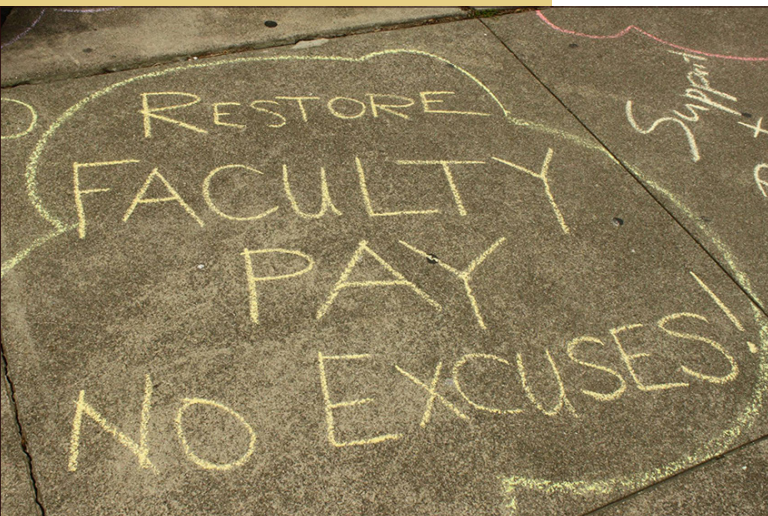 RESTORE
FACULTY
PAY
NO EXCUSES!
Support
+